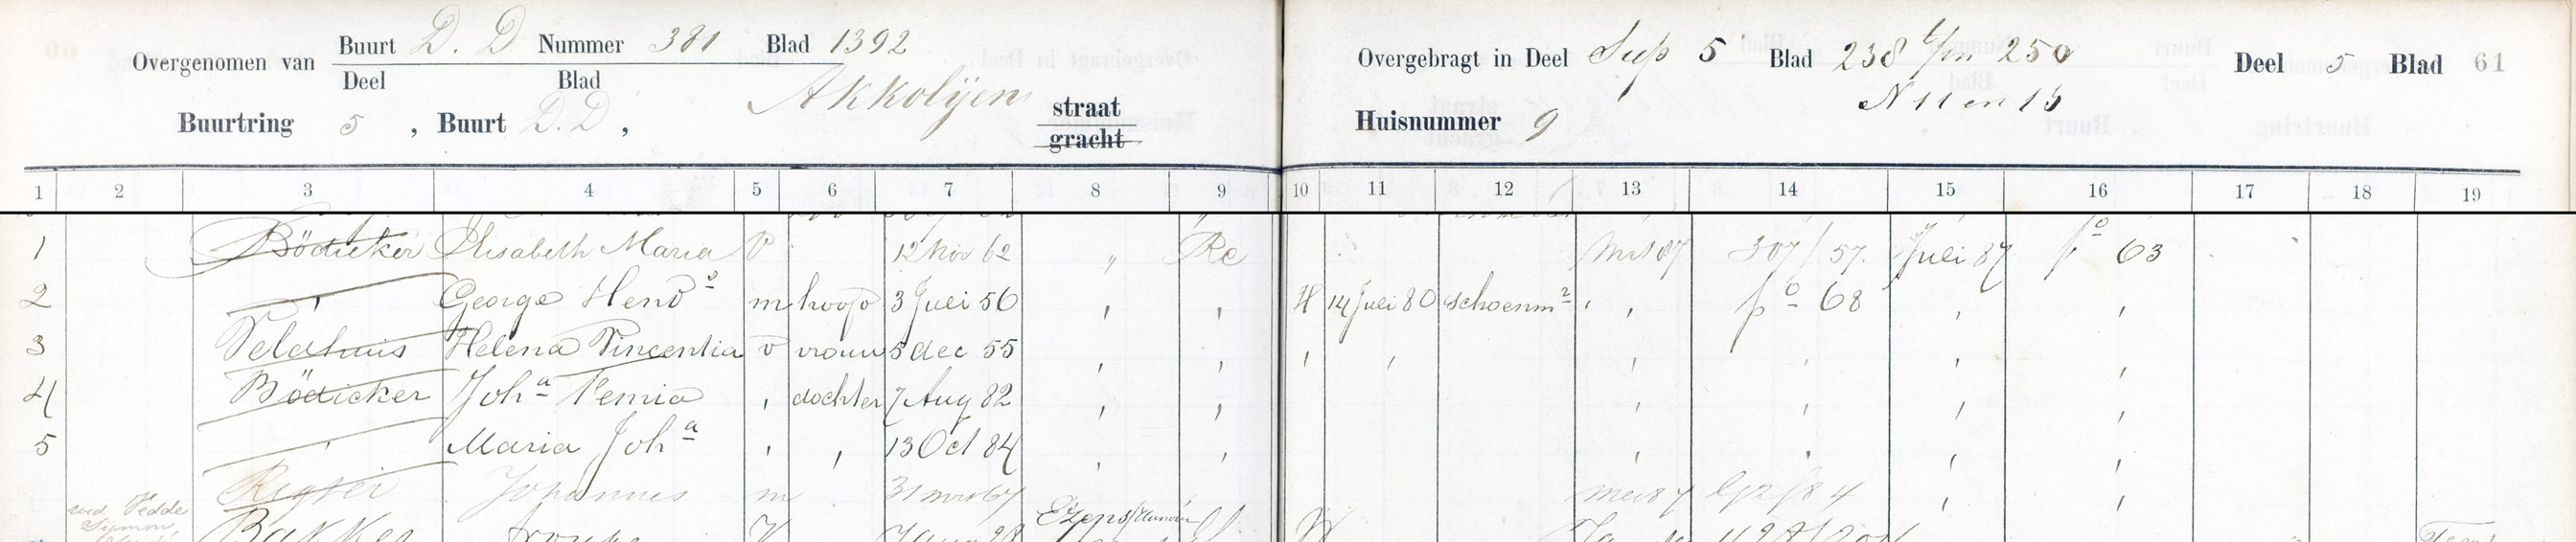 Overgenomen van Buurt D. D Nummer 381 Blad 1392
Deel Blad
Akkolijen straat
gracht
Buurtring 5, Buurt D.D,
Overgebragt in Deel Sup 5 Blad 238 t/m 250 Deel 5 Blad 61
N 11 en 13
Huisnummer 9
1 2 3 4 5 6 7 8 9 10 11 12 13 14 15 16 17 18 19
1 Bödicker Elisabeth Maria V 12 Nov 62 " Re Mrt 87 307/57. Juli 87 fo 63
2 ' George Hendk m hoofd 3 Juli 56 ' ' H 14 Juli 80 schoenmr ' ' fo 68 ' '
3 Veldhuis Helena Vincentia v vrouw 5 dec 55 ' ' ' ' ' ' ' '
4 Bödicker Joha Femia ' dochter 7 Aug 82 ' ' ' ' ' '
5 ' Maria Joha ' ' 13 Oct 84 ' ' ' ' ' '
Johannes m 31 mrt 67 mei 87 ' '
wed. Fedde
Bakker